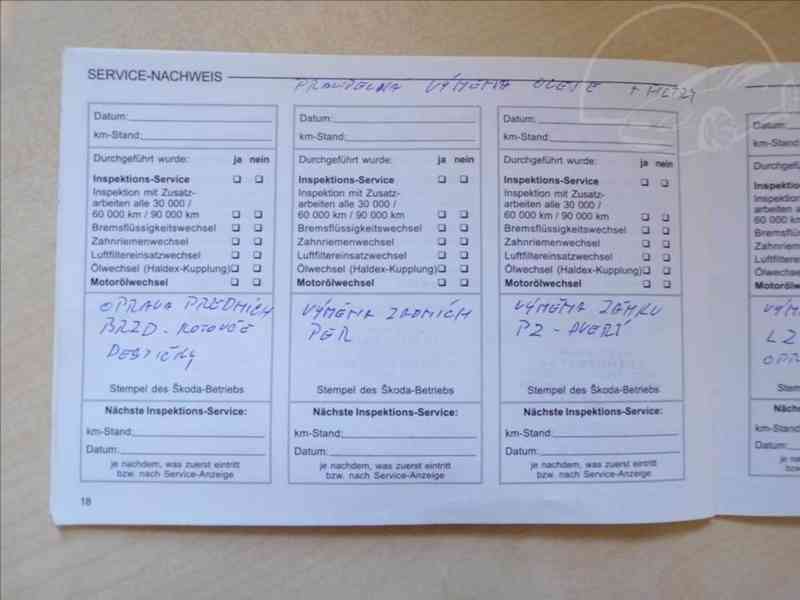 SERVICE-NACHWEIS
PRAVIDELNÁ VÝMĚNA OLEJE + FILTRY
Datum:
km-Stand:
Durchgeführt wurde: ja nein
Inspektions-Service
Inspektion mit Zusatz-
arbeiten alle 30 000 /
60 000 km / 90 000 km
Bremsflüssigkeitswechsel
Zahnriemenwechsel
Luftfiltereinsatzwechsel
Ölwechsel (Haldex-Kupplung)
Motorölwechsel
OPRAVA PŘEDNÍCH
BRZD - KOTOUČE
DESTIČKY
Stempel des Škoda-Betriebs
Nächste Inspektions-Service:
km-Stand:
Datum:
je nachdem, was zuerst eintritt
bzw. nach Service-Anzeige
Datum:
km-Stand:
Durchgeführt wurde: ja nein
Inspektions-Service
Inspektion mit Zusatz-
arbeiten alle 30 000 /
60 000 km / 90 000 km
Bremsflüssigkeitswechsel
Zahnriemenwechsel
Luftfiltereinsatzwechsel
Ölwechsel (Haldex-Kupplung)
Motorölwechsel
VÝMĚNA ZADNÍCH
PER
Stempel des Škoda-Betriebs
Nächste Inspektions-Service:
km-Stand:
Datum:
je nachdem, was zuerst eintritt
bzw. nach Service-Anzeige
Datum:
km-Stand:
Durchgeführt wurde: ja nein
Inspektions-Service
Inspektion mit Zusatz-
arbeiten alle 30 000 /
60 000 km / 90 000 km
Bremsflüssigkeitswechsel
Zahnriemenwechsel
Luftfiltereinsatzwechsel
Ölwechsel (Haldex-Kupplung)
Motorölwechsel
VÝMĚNA ZÁMKU
PZ - DVEŘÍ
Stempel des Škoda-Betriebs
Nächste Inspektions-Service:
km-Stand:
Datum:
je nachdem, was zuerst eintritt
bzw. nach Service-Anzeige
18